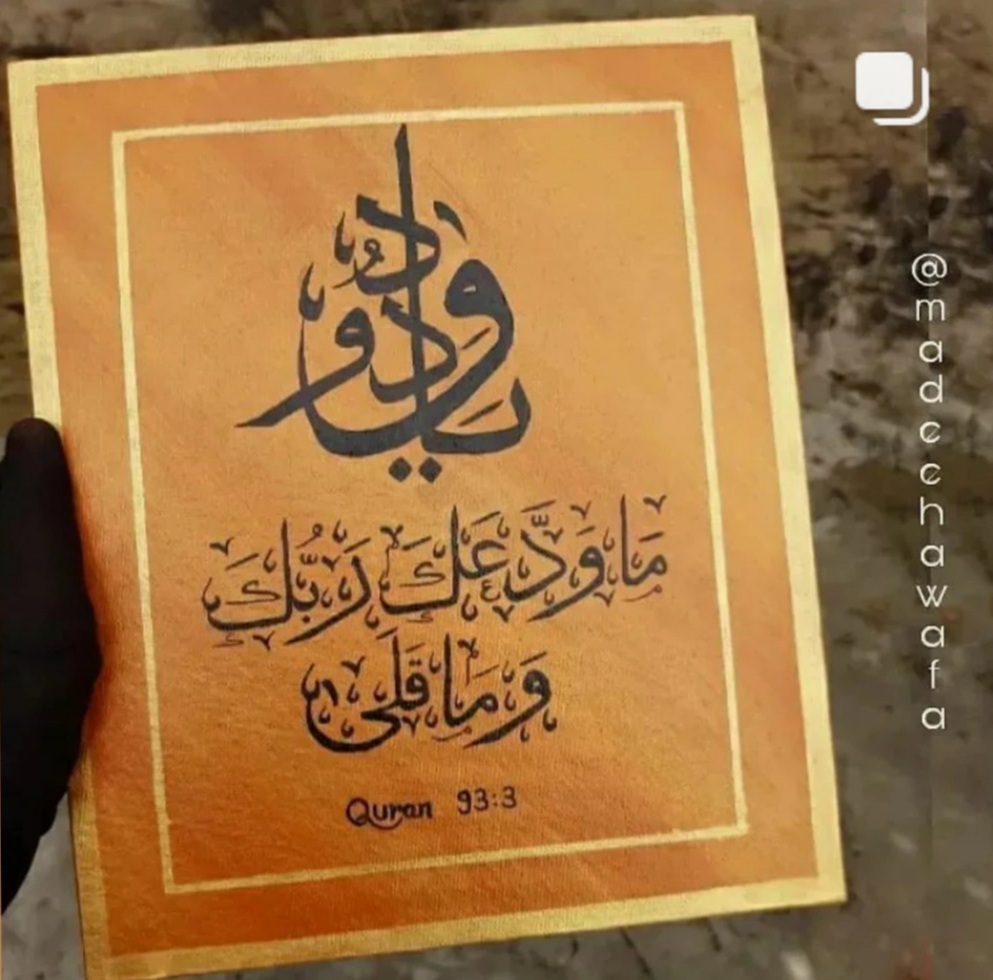 يا ودود
مَا وَدَّعَكَ رَبُّكَ
وَمَا قَلَىٰ
Quran 93:3
@madeehawafa